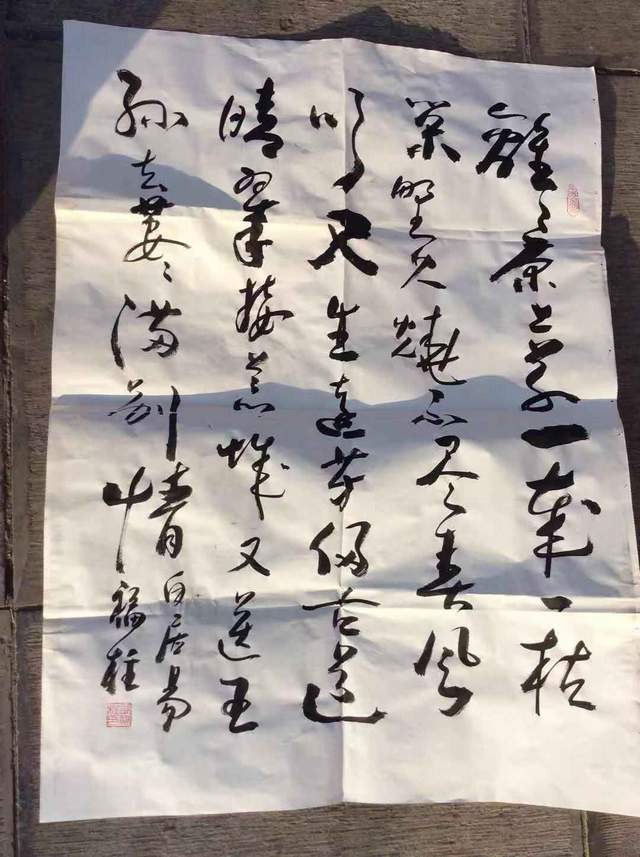 離々原上草一歲一枯
榮野火燒不尽春風
吹又生遠芳侵古道
晴翠接荒城又送王
孫去萋々滿別情
白居易
福柱